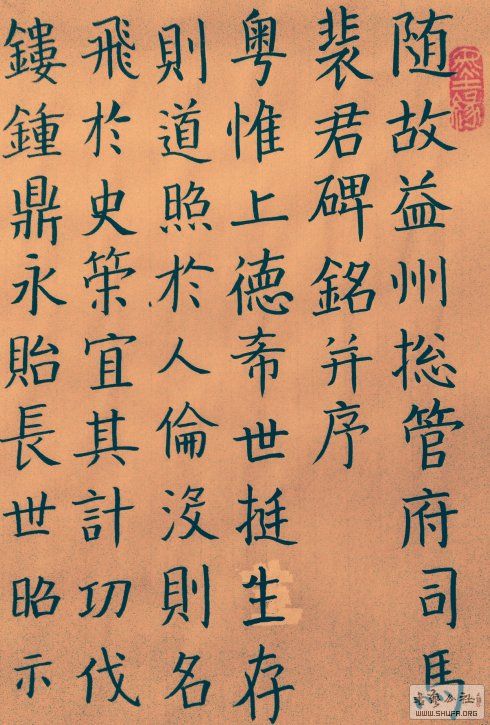 随故益州捴管府司馬
裴君碑銘并序
粤惟上德希世挺生存
則道照於人倫没則名
飛於史筞宜其計功伐
鏤鍾鼎永貽長世昭示
WWW.SHUFA.ORG